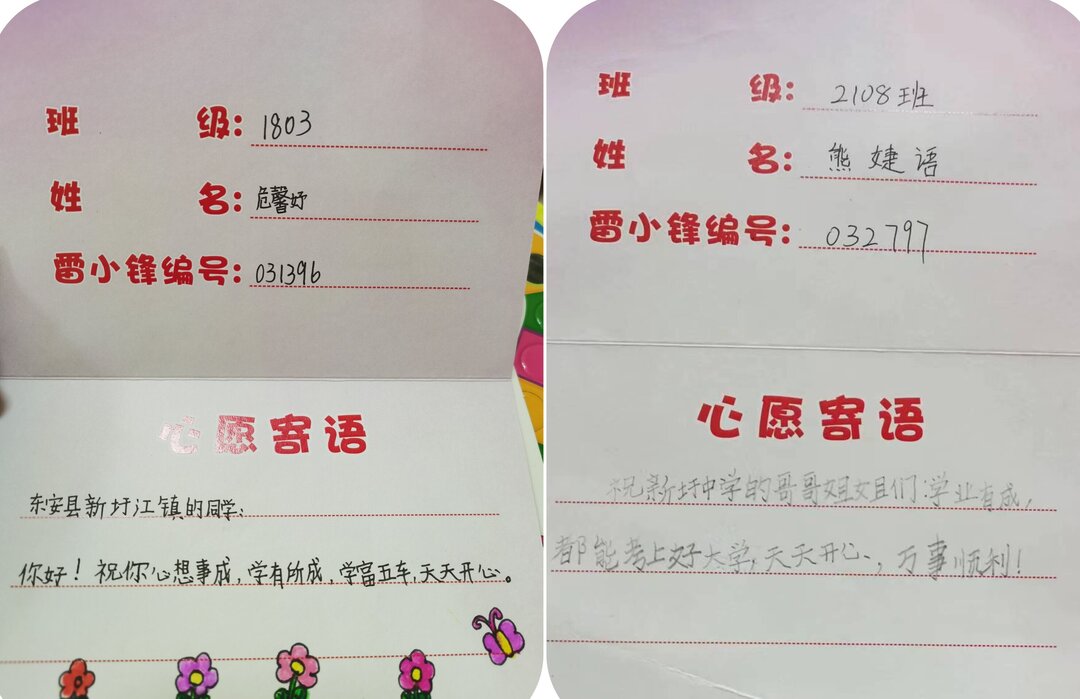 班 级: 1803
姓 名: 危馨妤
雷小锋编号: 031396
心愿寄语
东安县新圩江镇的同学:
你好！祝你心想事成，学有所成，学富五车，天天开心。
班 级: 2108班
姓 名: 熊婕语
雷小锋编号: 032797
心愿寄语
祝新圩中学的哥哥姐姐们:学业有成，
都能考上好大学,天天开心，万事顺利！